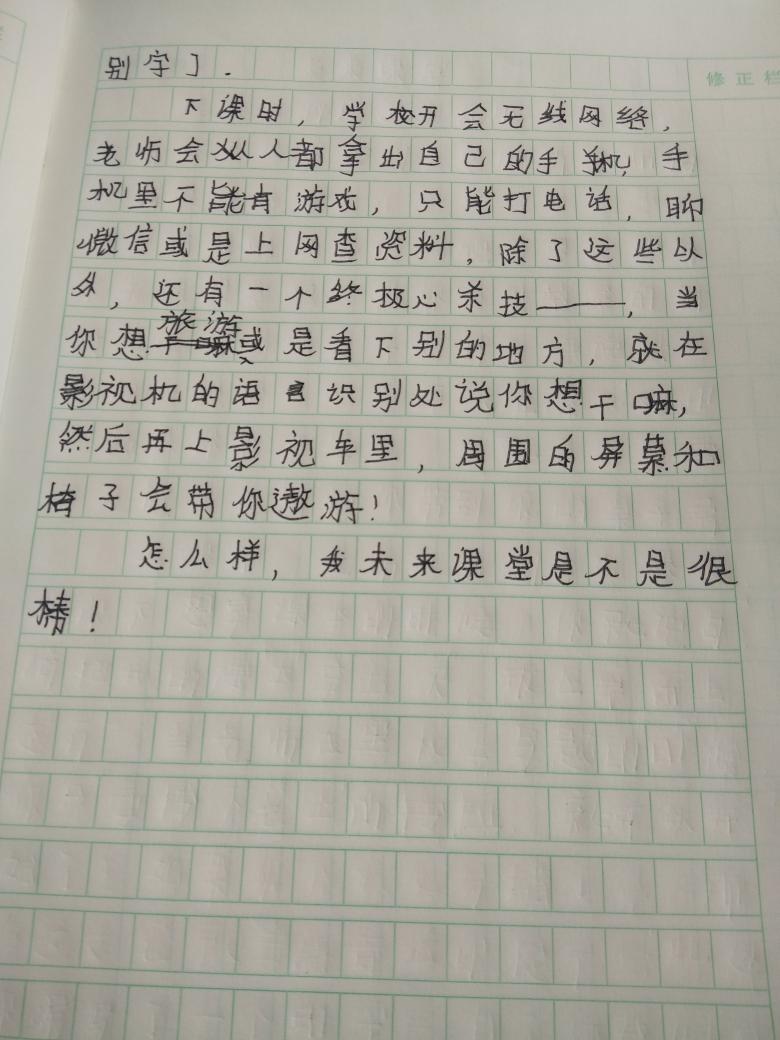 修正栏
别字了.
下课时，学校开会无线网络，
老师会人都拿出自己的手机，手
机里不能有游戏，只能打电话，聊
微信或是上网查资料，除了这些以
外，还有一个终极心杀技——，当
你想旅游或是看下别的地方，就在
影视机的语言识别处说你想干嘛，
然后再上影视车里，周围的屏幕和
椅子会带你遨游！
怎么样，我未来课堂是不是很
棒！